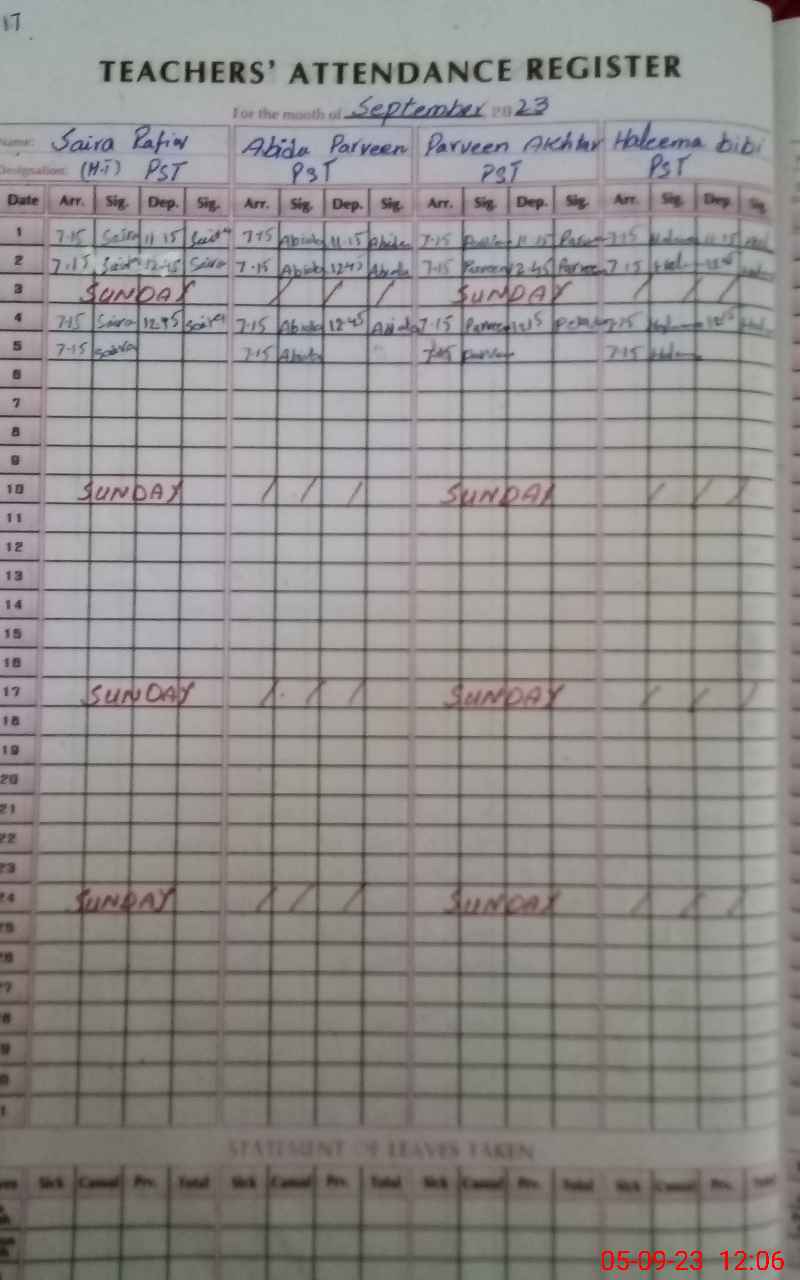 17
TEACHERS' ATTENDANCE REGISTER
For the month of September 2023
Name: Saira Abida Parveen Parveen Akhtar Haleema bibi
Designation: (H.T) PST PST PST PST
Date Arr. Sig. Dep. Sig. Arr. Sig. Dep. Sig. Arr. Sig. Dep. Sig. Arr. Sig. Dep. Sig
1 7-15 Saira 11 15 Saira 7-15 Abida 11-15 Abida 7-15 11 15 7-15 11 15
2 7-15 Saira 12-45 Saira 7-15 Abida 12 45 Abida 7-15 Parveen 12 45 Parveen 7 15
3 SUNDAY / / / SUNDAY / / /
4 7-15 Saira 12 45 Saira 7-15 Abida 12 45 Abida 7-15 7-15
5 7-15 Saira 7-15 Abida 7-15 7-15
6
7
8
9
10 SUNDAY / / / SUNDAY / / /
11
12
13
14
15
16
17 SUNDAY / / / SUNDAY / / /
18
19
20
21
22
23
24 SUNDAY / / / SUNDAY / / /
25
26
27
8
9
0
1
STATEMENT OF LEAVES TAKEN
Sick Casual Prv. Total Sick Casual Prv. Total Sick Casual Prv. Total Sick Casual Prv. Total
05-09-23 12:06